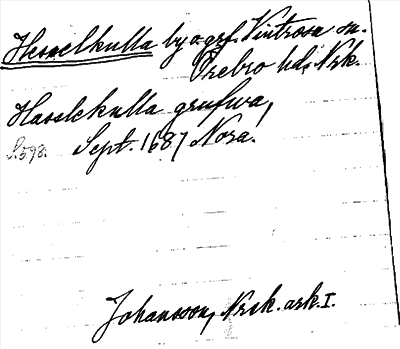 Hesselkulla by o. grf. Vintrosa sn.
Örebro hd, Nrk.
Hasslekulla grufwa,
S. 598. Sept. 1687 Nora.
Johansson, Nrsk. ark. I.